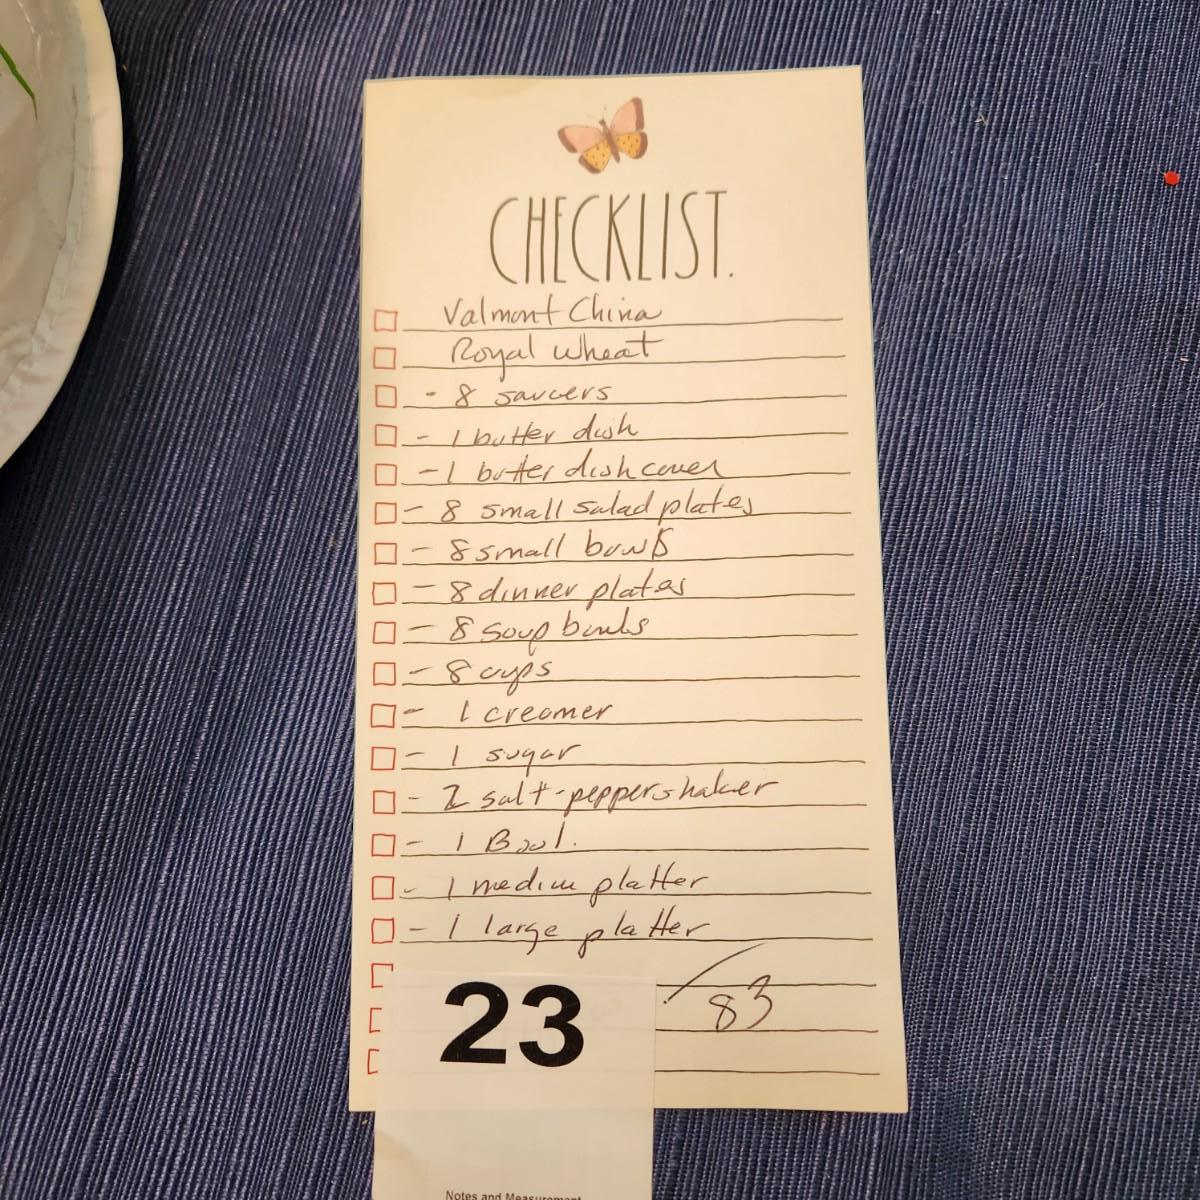 CHECKLIST.
Valmont China
Royal Wheat
- 8 saucers
- 1 butter dish
- 1 butter dish cover
- 8 small salad plates
- 8 small bowls
- 8 dinner plates
- 8 soup bowls
- 8 cups
- 1 creamer
- 1 sugar
- 2 salt-pepper shaker
- 1 Bowl.
- 1 medium platter
- 1 large platter
/83
23
Notes and Measurement